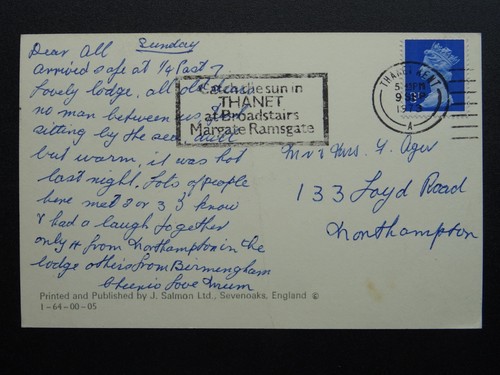 Dear All Sunday
arrived safe at ¼ past 7
Lovely lodge, all old
no man between us
sitting by the sea dull
but warm, it was hot
last night. Lots of people
here met 2 or 3 I know
& had a laugh together
only 4 from Northampton in the
lodge others from Bermengham
Cheerio Love Mum
Printed and Published by J. Salmon Ltd., Sevenoaks, England ©
1-64-00-05
Catch the sun in
THANET
at Broadstairs
Margate Ramsgate
THANET KENT
9 SEP
A
Mr & Mrs. F. Ager
133 Loyd Road
Northampton